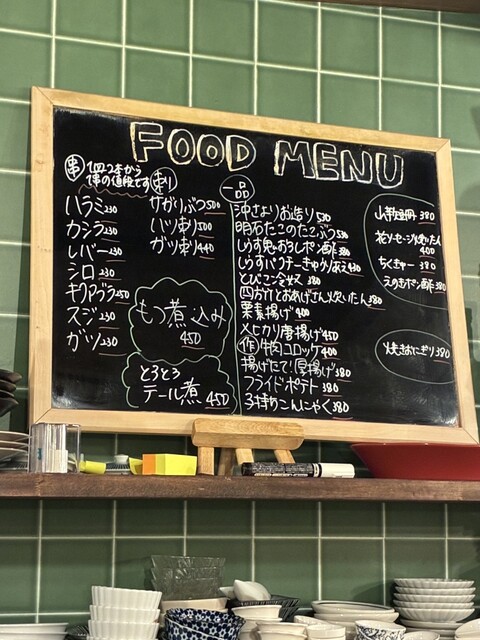 FOOD MENU
串 1回2本から
1本の値段です
ハラミ 230
カシラ 230
レバー 230
シロ 230
キクアブラ 250
スジ 230
ガツ 230
刺り
サガリぶつ 500
ハツ刺 500
ガツ刺 440
もつ煮込み
450
とろとろ
テール煮 450
一品
沖さよりお造り 530
明石たこのたこぶつ 530
しらす鬼おろしポン酢 380
しらすパクチーきゅうりあえ 430
とびこ冷奴 380
四万十とおあげさん炊いたん 380
栗素揚げ 400
メヒカリ唐揚げ 450
作牛肉コロッケ 400
揚げたて!厚揚げ 380
フライドポテト 380
お持ちこんにゃく 380
山芋短冊 380
花ソーセージ焼いたん
400
ちくきゅー 380
えのきポン酢 380
焼きおにぎり 380